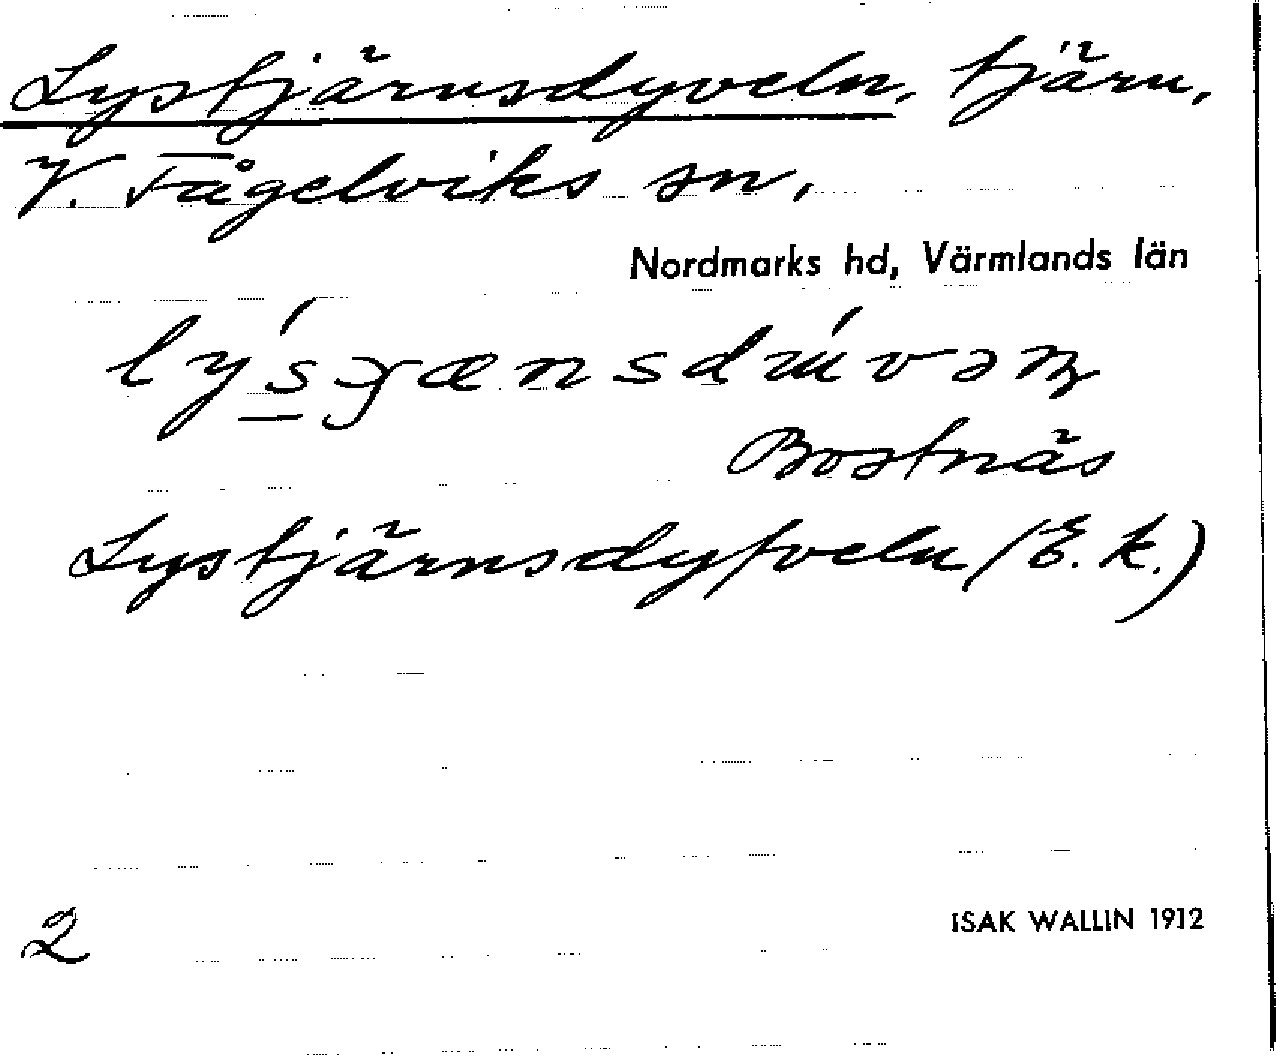 Lystjärnsdyveln, tjärn,
V. Fågelviks sn,
Nordmarks hd, Värmlands län
Bostnäs
Lystjärnsdyfveln (E. k.)
2
ISAK WALLIN 1912